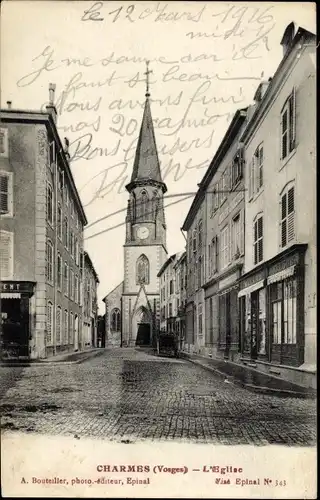 Le 12 Mars 1916
midi
Je me sauve car il
fait si beau
Nous avons fini
nos 20 camions
Bons baisers
ENT
CHARMES (Vosges) — L'Eglise
A. Bouteiller, photo.-éditeur, Epinal
Visé Epinal N° 343